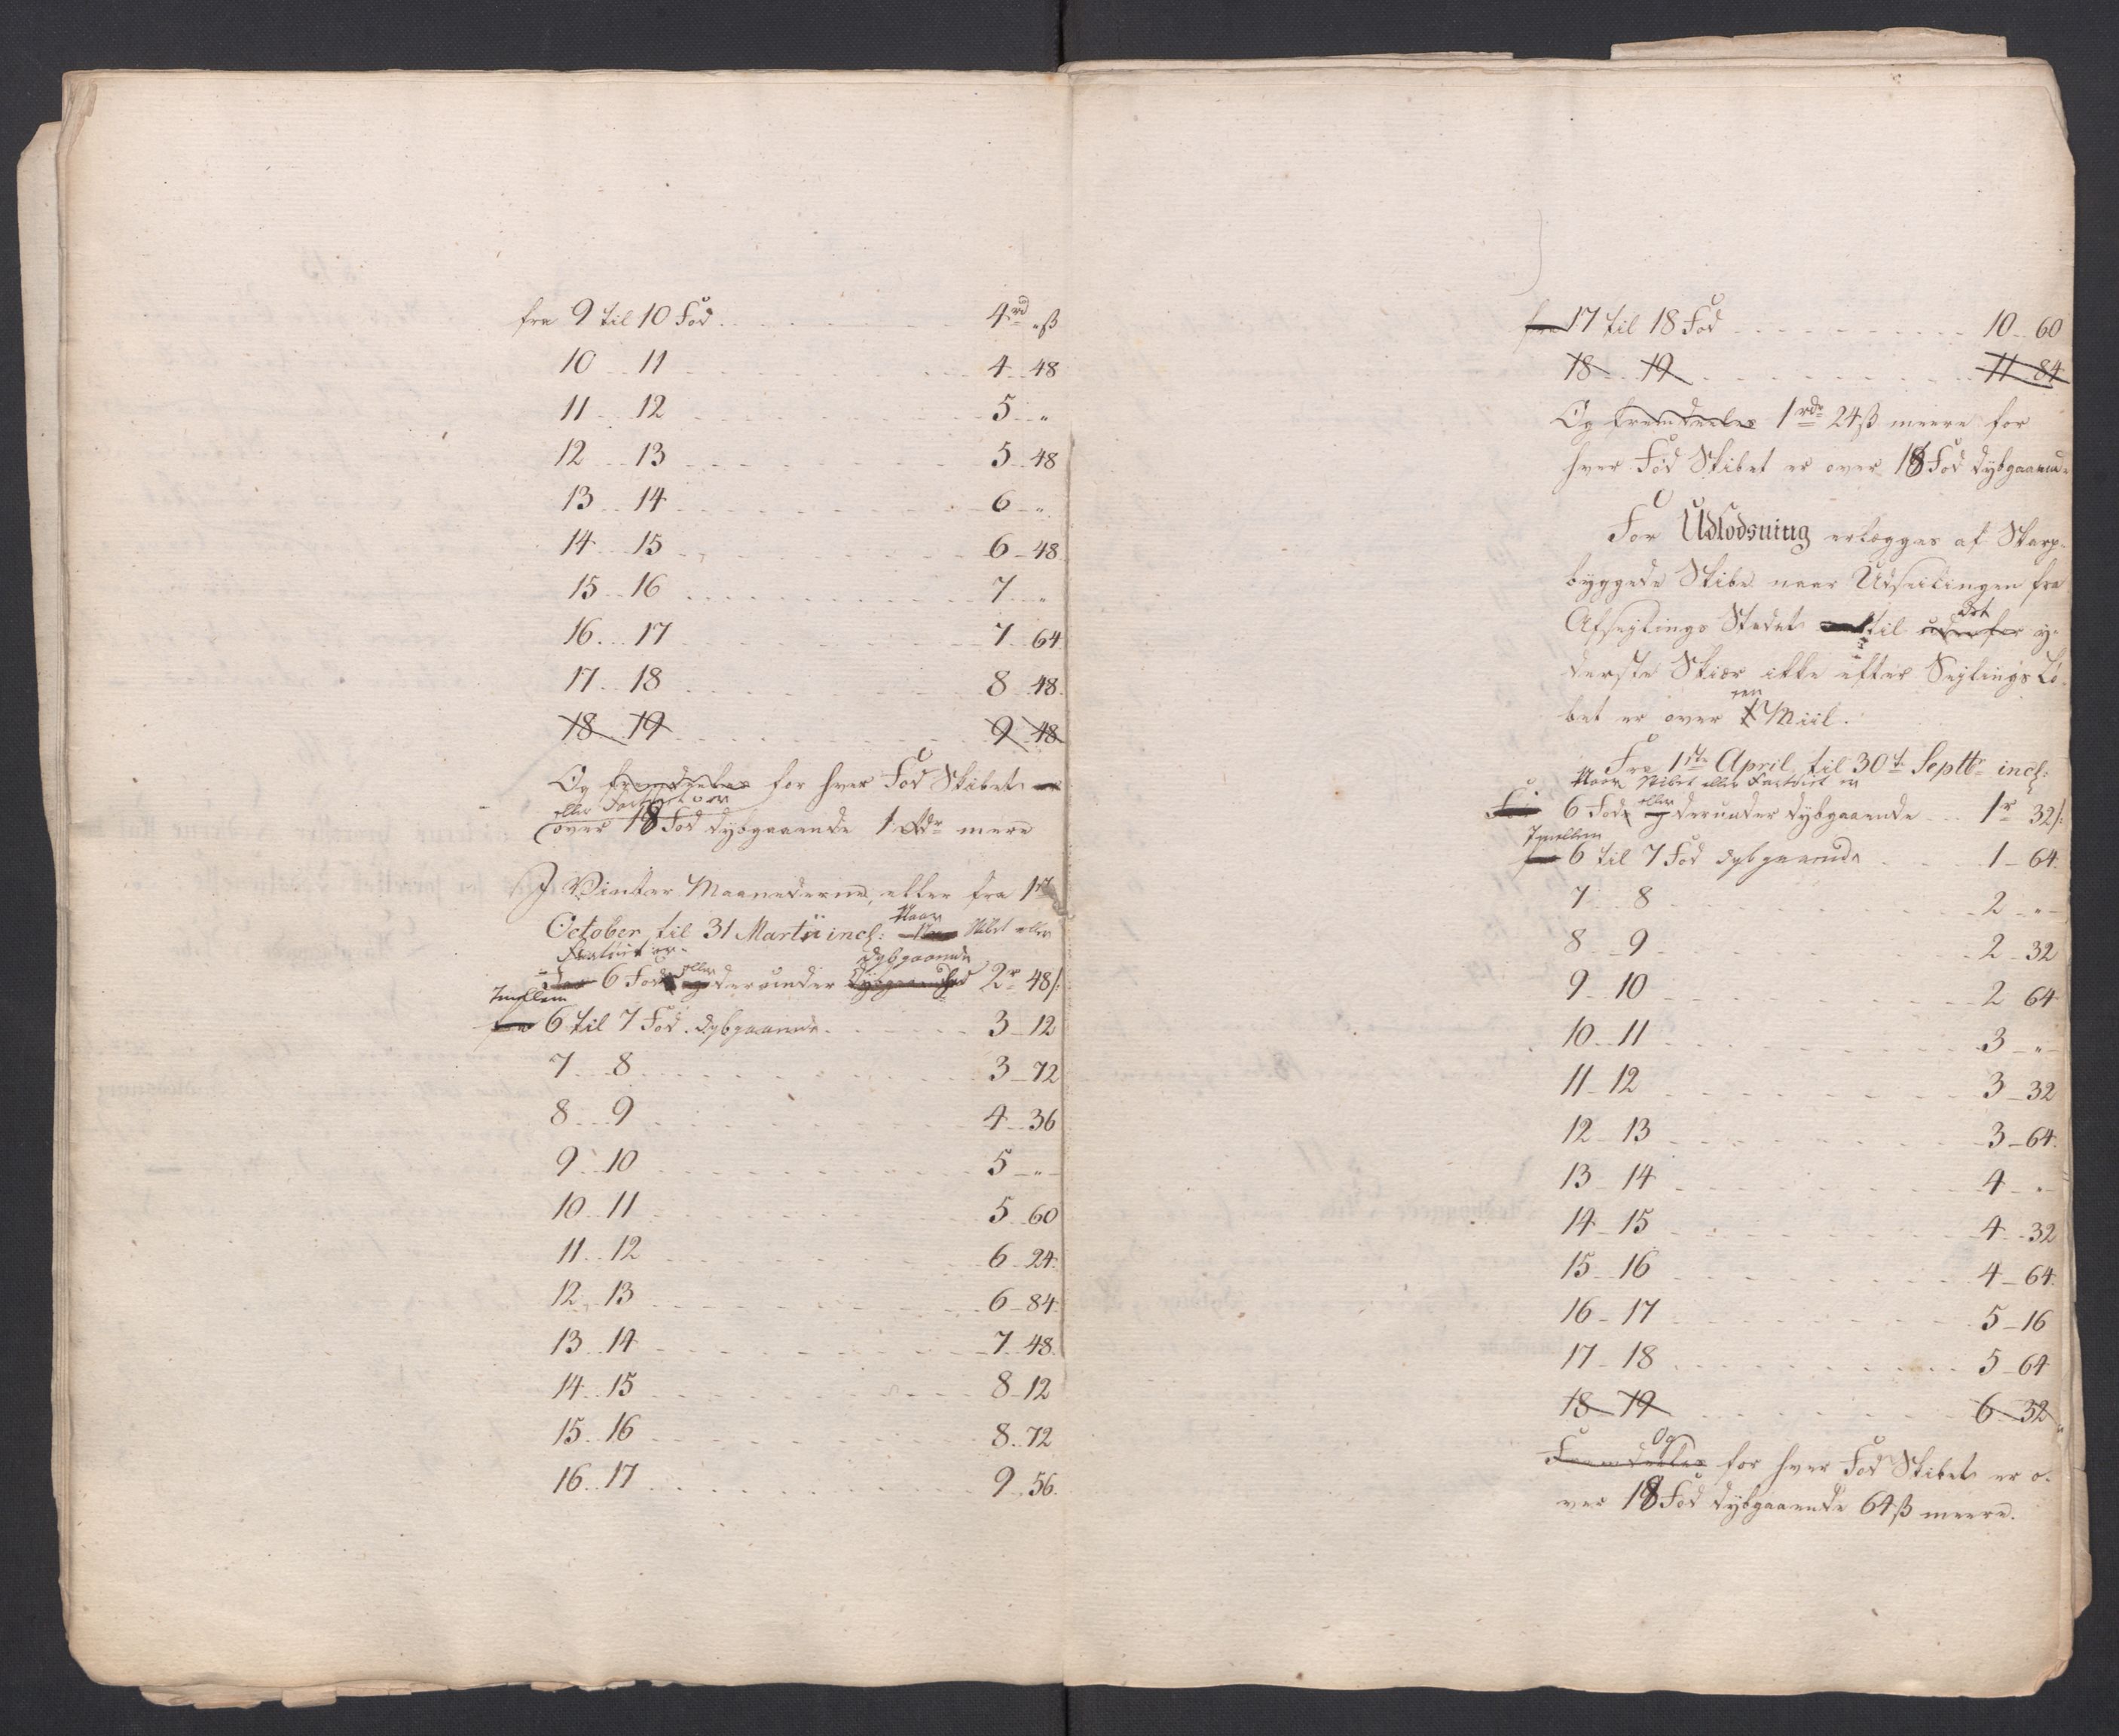 fra 9 til 10 Fod . . . . 4 rd „ ß
10 . . 11 . . . . 4 . . 48
11 . . 12 . . . . 5 . . „
12 . . 13 . . . . 5 . . 48
13 . . 14 . . . . 6 . . „
14 . . 15 . . . . 6 – 48
15 . . 16 . . . . 7 . . „
16 . . 17 . . . . 7 . . 64
17 . . 18 . . . . 8 . . 48
18 . . 19 . . . . 9 . . 48
Og fremdeeles for hver Fod Skibet er
eller Fartøiet er
over 18 Fod dybgaaende 1 Rdr mere
I Vinter Maanederne, eller fra 1ste
Naar
October til 31 Martii incl: Skibet eller
Fartøiet er
eller dybgaaende
6 Fod og derunder dybgaaende 2r 48/:
Imellem
fra 6 til 7 Fod dybgaaende . . . . 3 – 12
7 . . 8 . . . . 3 – 72
8 . . 9 . . . . 4 . . 36
9 . . 10 . . . . 5 – „
10 . . 11 . . . . 5 . . 60
11 . . 12 . . . . 6 . . 24
12 . . 13 . . . . 6 – 84
13 . . 14 . . . . 7 . . 48
14 . . 15 . . . . 8 – 12
15 . . 16 . . . . 8 . . 72
16 . . 17 . . . . 9 . . 56
fra 17 til 18 Fod . . . . 10 . . 60
18 . . 19 . . . . 11 . . 84
Og fremdeeles 1 rdr 24 ß meere for
hver Fod Skibet er over 18 Fod dybgaaende
For Udlodsning erlægges af Skarp-
byggede Skibe naar Udseilingen fra
det
Afseylings Stedet til udenfor y-
derste Skiær ikke efter Seylings Lø-
een
bet er over 1 Miil.
Fra 1ste April til 30te Septbr incl:
Naar Skibet eller Fartøiet er
eller
6 Fod og derunder dybgaaende . . . 1r 32/:
Imellem
fra 6 til 7 Fod dybgaaende . . . . 1 – 64
7 . . 8 . . . . 2 – „
8 . . 9 . . . . 2 – 32
9 . . 10 . . . . 2 64
10 . . 11 . . . . 3 – „
11 – 12 . . . . 3 – 32
12 – 13 . . . . 3 – 64
13 – 14 . . . . 4 – „
14 – 15 . . . . 4 . . 32
15 – 16 . . . . 4 – 64
16 – 17 . . . . 5 – 16
17 – 18 . . . . 5 – 64
18 – 19 . . . . 6 – 32
Og
Fremdeeles for hver Fod Skibet er o-
ver 18 Fod dybgaaende 64 ß meere.